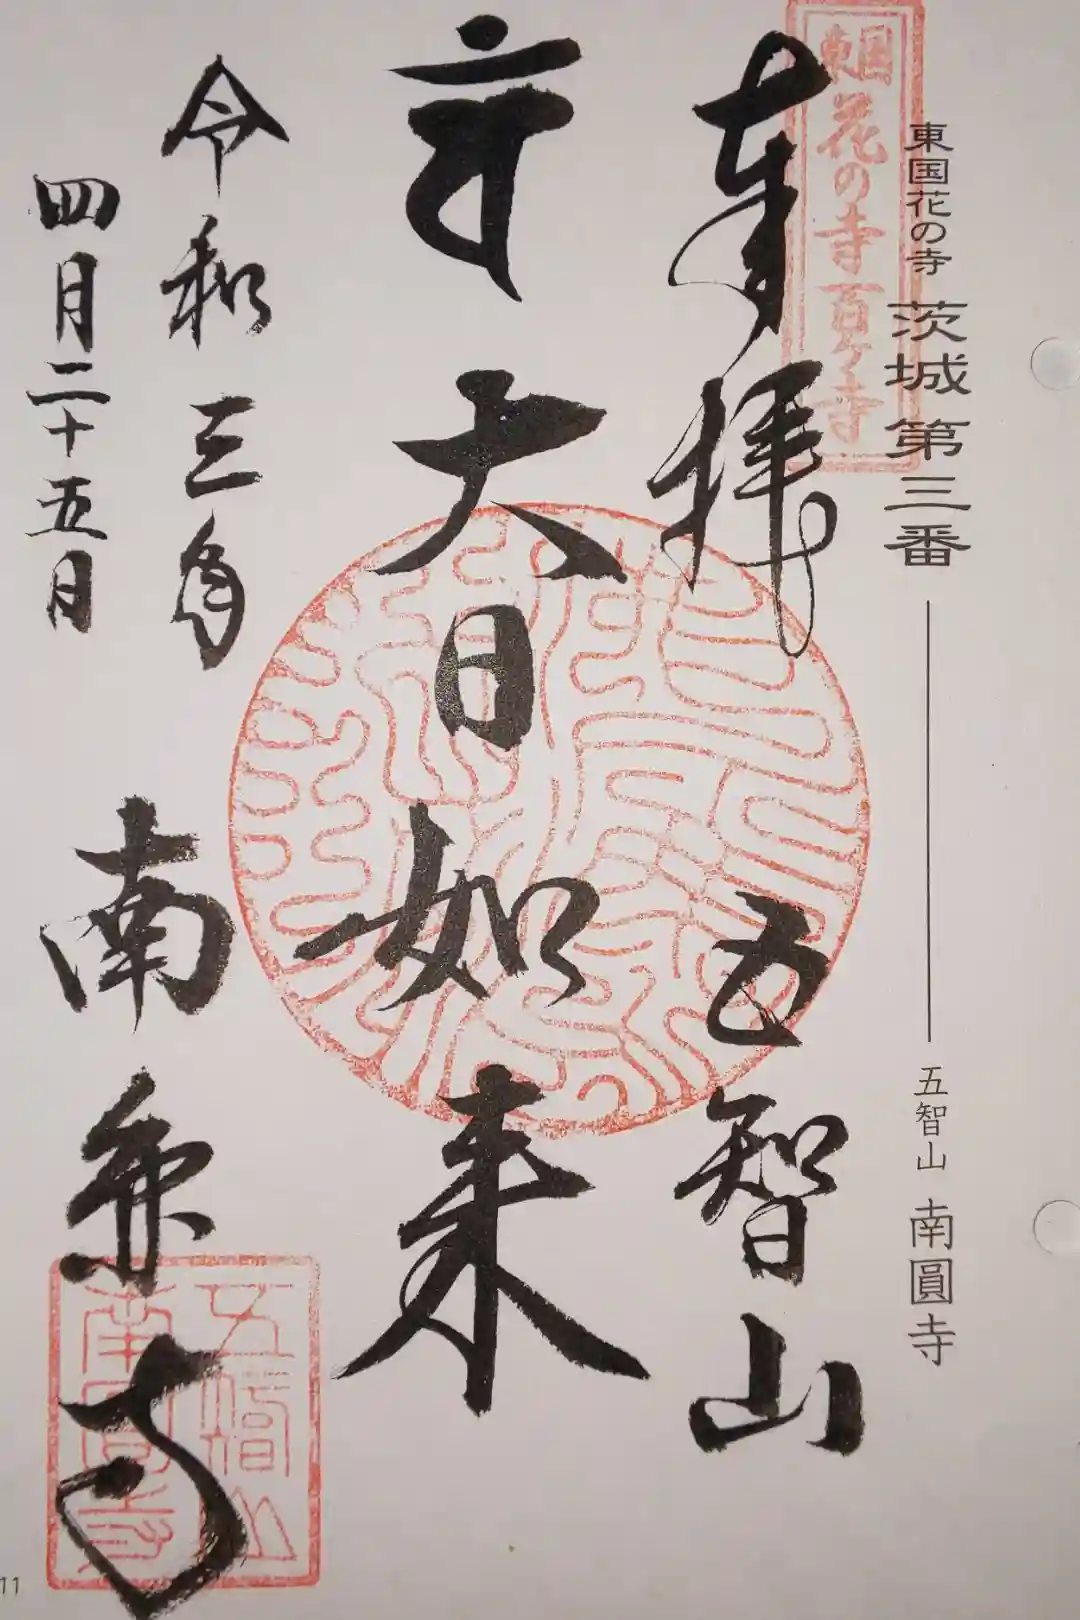 東国花の寺 茨城 第三番
五智山 南圓寺
東国花の寺百ヶ寺
奉拝 五智山
大日如来
令和三年
四月二十五日
南円寺
五智山
南圓寺
11